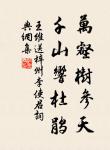 萬壑樹參天
千山響杜鵑
王維送梓州李使君詞
典網集